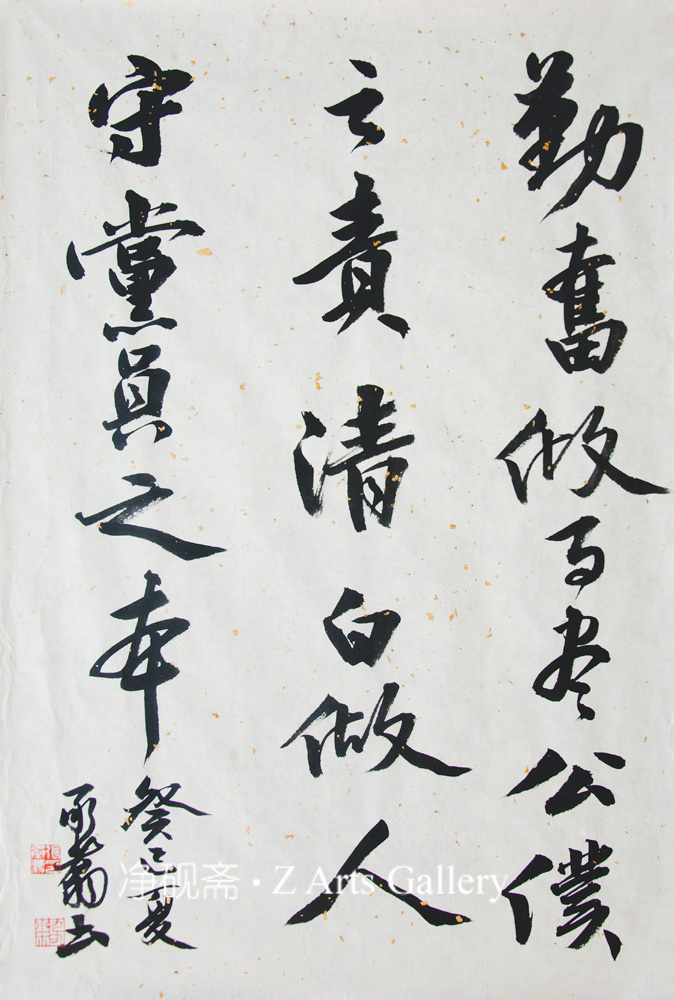 勤奮做事尽公僕
之責清白做人
守黨員之本
癸巳夏
净砚斋 · Z Arts Gallery